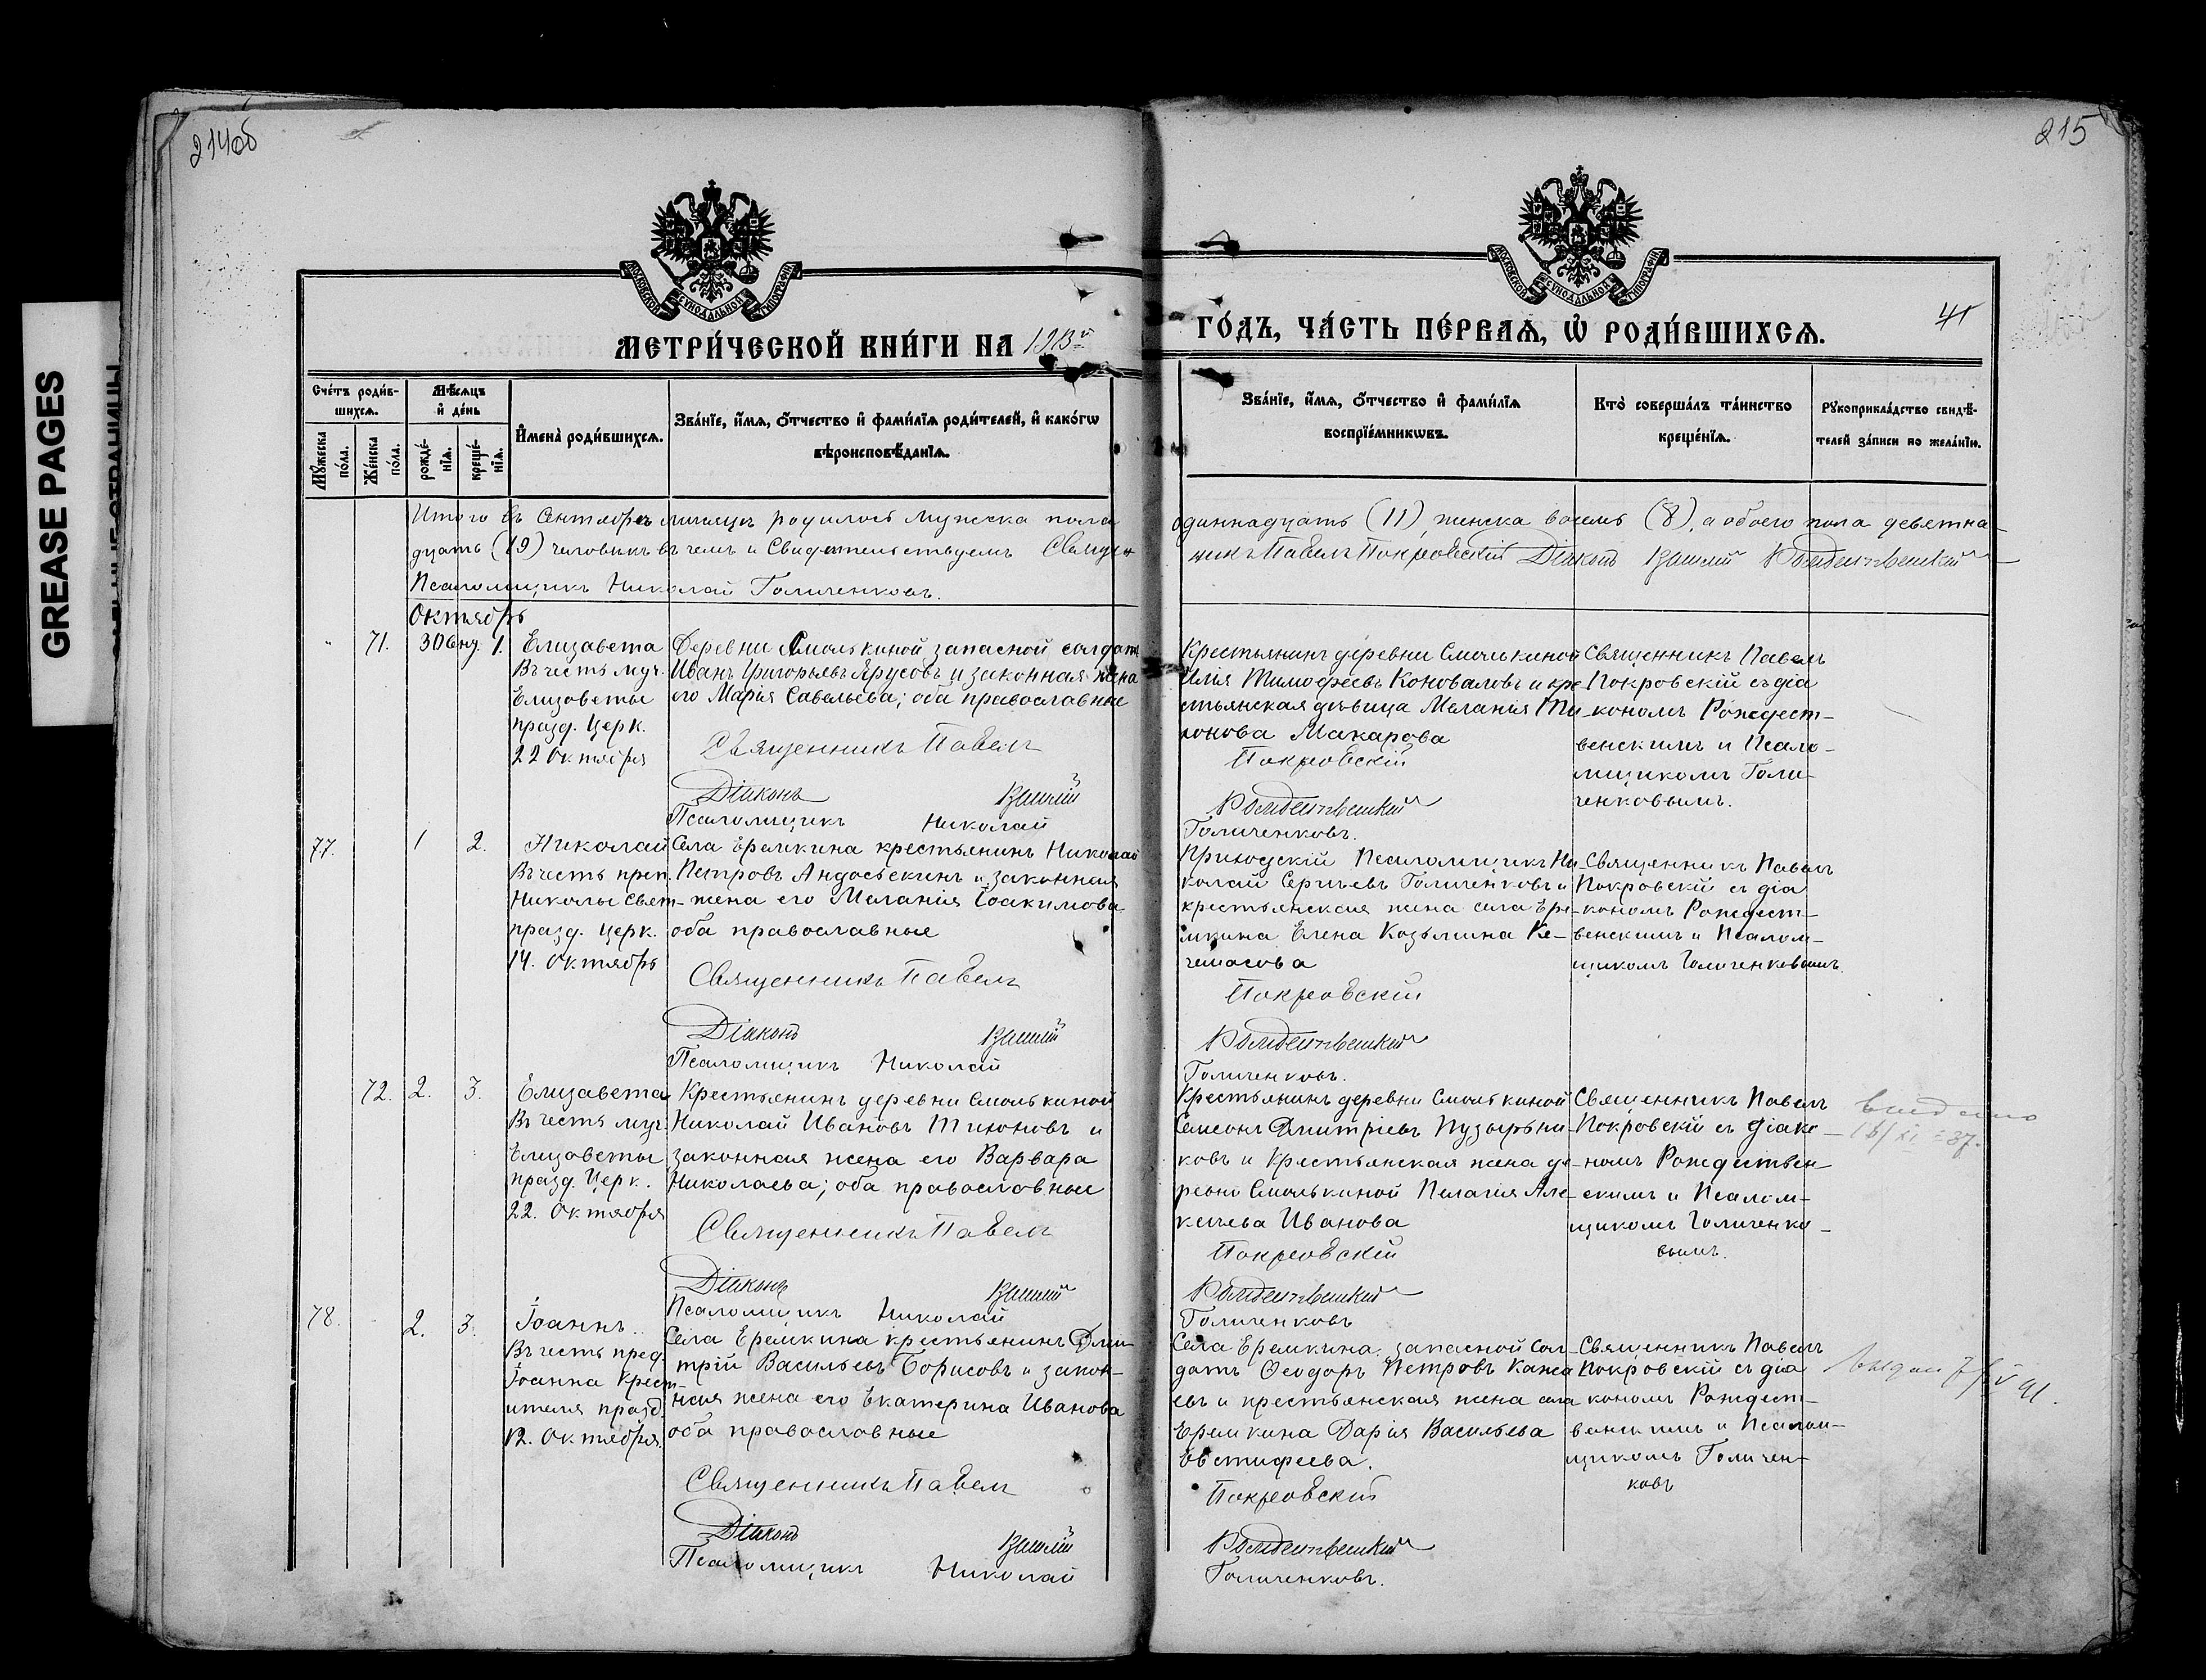 214об
215
41
GREASE PAGES
МОСКОВСКОЙ СѴНОДАЛЬНОЙ ТИПОГРАФІИ
МОСКОВСКОЙ СѴНОДАЛЬНОЙ ТИПОГРАФІИ
МЕТРИ́ЧЕСКОЙ КНИ́ГИ НА 1913й
ГО́ДЪ, ЧА́СТЬ ПЕ́РВАѦ, Ѡ҆ РОДИ́ВШИХСѦ.
Сче́тъ роди́в-
шихсѧ.
Мѣ́сѧцъ
и҆ де́нь
Мꙋ́жеска по́ла.
Же́нска по́ла.
рожде́-
нїѧ.
креще́-
нїѧ.
И҆мена̀ роди́вшихсѧ.
Зва́нїе, и҆́мѧ, ѻ҆́тчество и҆ фами́лїѧ роди́телей, и҆ како́гѡ
вѣроисповѣ́данїѧ.
Зва́нїе, и҆́мѧ, ѻ҆́тчество и҆ фами́лїѧ
воспрїе́мникѡвъ.
Кто̀ соверша́лъ та́инство
креще́нїѧ.
Рꙋкоприкла́дство свидѣ́-
телей за́писи по жела́нїю.
Итого въ Сентябрѣ мѣсяцѣ родилось мужеска пола
одиннадцать (11), женска восемь (8), а обоего пола девятна-
дцать (19) человѣкъ въ чемъ и Свидѣтельствуемъ Свящ
никъ Павелъ Покровскій Діаконъ Василій Рождественскій
Псаломщикъ Николай Голиченковъ.
Октябрь
" 71. 30 1.
Елизавета
Въ честь муч.
Елизаветы
празд. Церк.
22 Октября
Деревни Смолькиной запасной солдатъ
Иванъ Григорьевъ Ярусовъ и законная жена
его Марія Савельева; оба православные
Священникъ Павелъ
Діаконъ Василій
Псаломщикъ Николай
Крестьянинъ деревни Смолькиной
Илія Тимофеевъ Коноваловъ и кре
стьянская дѣвица Меланія Ти
хонова Макарова
Покровскій
Рождественскій
Голиченковъ.
Священникъ Павелъ
Покровскій съ діа
кономъ Рождест-
венскимъ и Псало-
мщикомъ Голи-
ченковымъ.
77. 1 2.
Николай
Въ честь преп.
Николы Свят-
празд. Церк.
14. Октябрь
Села Еремкина крестьянинъ Николай
Петровъ Андосьекинъ и законная
жена его Меланія Іоакимова
оба православные
Священникъ Павелъ
Діаконъ Василій
Псаломщикъ Николай
Приходскій Псаломщикъ Ни
колай Сергѣевъ Голиченковъ и
крестьянская жена села Ере-
мкина Елена Козьмина Ке-
чемасова
Покровскій
Рождественскій
Голиченковъ.
Священникъ Павелъ
Покровскій съ діа
кономъ Рождест-
венскимъ и Псалом-
щикомъ Голиченковымъ.
72. 2. 3.
Елизавета
Въ честь муч.
Елизаветы
празд. Церк.
22. Октября
Крестьянинъ деревни Смолькиной
Николай Ивановъ Тихоновъ и
законная жена его Варвара
Николаева; оба православные
Священникъ Павелъ
Діаконъ Василій
Псаломщикъ Николай
Крестьянинъ деревни Смолькиной
Семенъ Дмитріевъ Пузырьни-
ковъ и Крестьянская жена де-
ревни Смолькиной Пелагія Але-
ксѣева Иванова
Покровскій
Рождественскій
Голиченковъ
Священникъ Павелъ
Покровскій съ діако-
номъ Рождествен
скимъ и Псалом-
щикомъ Голиченко-
вымъ.
78. 2. 3.
Іоаннъ
Въ честь пред.
Іоанна Крест-
ителя празд.
12. Октября.
Села Еремкина крестьянинъ Дми-
трій Васильевъ Борисовъ и закон-
ная жена его Екатерина Иванова
оба православные
Священникъ Павелъ
Діаконъ Василій
Псаломщикъ Николай
Села Еремкина запасной сол-
датъ Ѳеодоръ Петровъ Кажа
евъ и крестьянская жена села
Еремкина Дарія Васильева
Евстифеева.
Покровскій
Рождественскій
Голиченковъ.
Священникъ Павелъ
Покровскій съ діа
кономъ Рождест-
венскимъ и Псалом-
щикомъ Голичен-
ковъ